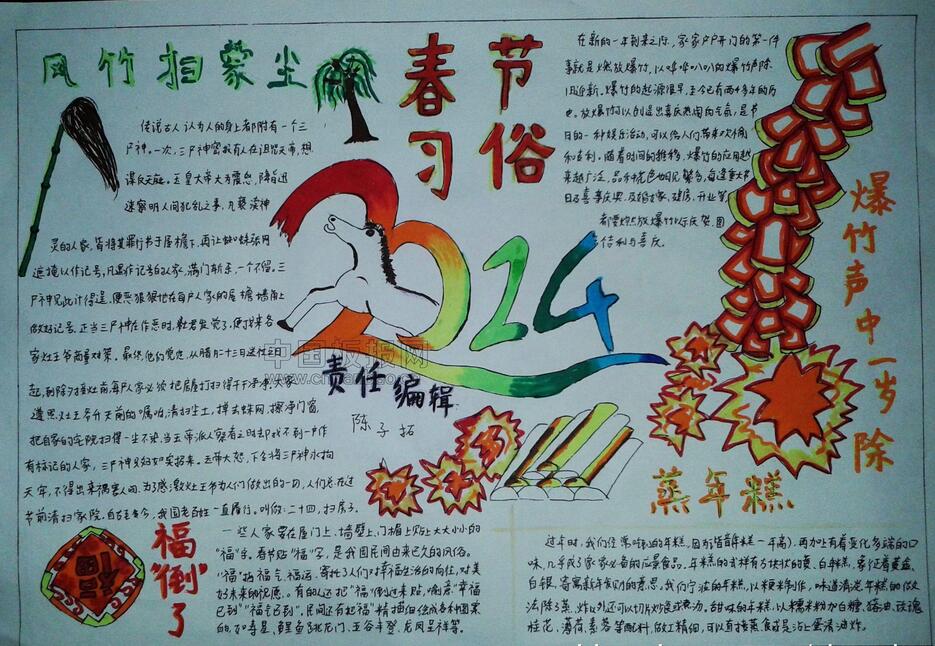 风竹扫蒙尘
春节
习俗
传说古人认为人的身上都附有一个三
尸神。一次,三尸神密报有人在诅咒天帝,想
谋反天庭。玉皇大帝大为震怒,降旨迅
速察明人间犯乱之事,凡亵渎神
灵的人家,皆将其罪行书于屋檐下,再让蜘蛛张网
遮掩以作记号,凡遇作记号的人家,满门斩杀,一个不留。三
尸神见此计得逞,便恶狠狠地在每户人家的屋檐墙角上
做好记号。正当三尸神在作恶时,
家灶王爷商量对策。最终,他们
起,到除夕接灶前,每户人家必须把房屋打扫得干干净净,大家
遵照灶王爷升天前的嘱咐,清扫尘土,掸去蛛网,擦净门窗,
把自家的宅院扫得一尘不染。当王帝派人察看之时却找不到一户作
有标记的人家,三尸神
天牢,不得出来祸害人间。为了感激灶王爷为人们做出的一切,人们总在过
节前清扫家院。自古至今,我国老百姓一直履行。叫做:二十四,扫房子。
2024
责任编辑
陈子拓
中国板报网
在新的一年到来之际,家家户户开门的第一件
事就是燃放爆竹,以哔哔叭叭的爆竹声除
旧迎新。爆竹的起源很早,至今已有两千多年的历
史。放爆竹可以创造出喜庆热闹的气氛,是节
日的一种娱乐活动,可以给人们带来欢愉
和吉利。随着时间的推移,爆竹的应用越
来越广泛,品种花色也日见繁多,每逢重大节
日及喜事庆典,及婚嫁、建房、开业等
都要燃放爆竹以示庆贺,图
吉利与喜庆。
爆竹声中一岁除
福
"倒"
了
一些人家要在屋门上、墙壁上、门楣上贴上大大小小的
"福"字。春节贴"福"字,是我国民间由来已久的风俗。
"福"指福气、福运,寄托了人们对幸福生活的向往,对美
好未来的祝愿。有的人还把"福"倒过来贴,喻意:"幸福
已到""福气已到"。民间还有把"福"精描细绘成各种图案
的,如寿星、鲤鱼跳龙门、五谷丰登、龙凤呈祥等。
福
蒸年糕
过年时,我们经常吃到的年糕,因为谐音年糕(一年高),再加上有着变化多端的口
味,几乎成了家家必备的应景食品。年糕的式样有方块状的黄、白年糕,象征着黄金、
白银,寄寓新年发财的意思。我们宁波的年糕,以粳米制作,味道清淡。年糕的做
法除了蒸、炸以外还可以切片炒或煮汤。甜味的年糕,以糯米粉加白糖、猪油、玫瑰
桂花、薄荷、素蓉等配料,做工精细,可以直接蒸食或是沾上蛋清油炸。